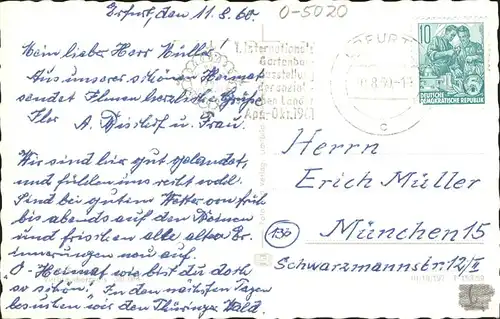 Erfurt, den 11.8.60.
0-5020
Mein lieber Herr Müller!
Aus unserer schönen Heimat
sendet Ihnen herzliche Grüße
Ihr A. und Frau.
Wir sind hier gut gelandet,
und fühlen uns recht wohl.
Sind bei gutem Wetter von früh
bis abends auf den Beinen
und frischen alle alten Er-
innerungen neu auf.
"O- Heimat wie bist du doch
so schön." In den nächsten Tagen
besuchen wir den Thüringer Wald.
1. Internationale
Gartenbau
ausstellung
der sozial
Länder
Apr.-Okt. 1961
ERFURT
c
10
DEUTSCHE
DEMOKRATISCHE REPUBLIK
Herrn
Erich Müller
München 15
Schwarzmannstr. 12/II